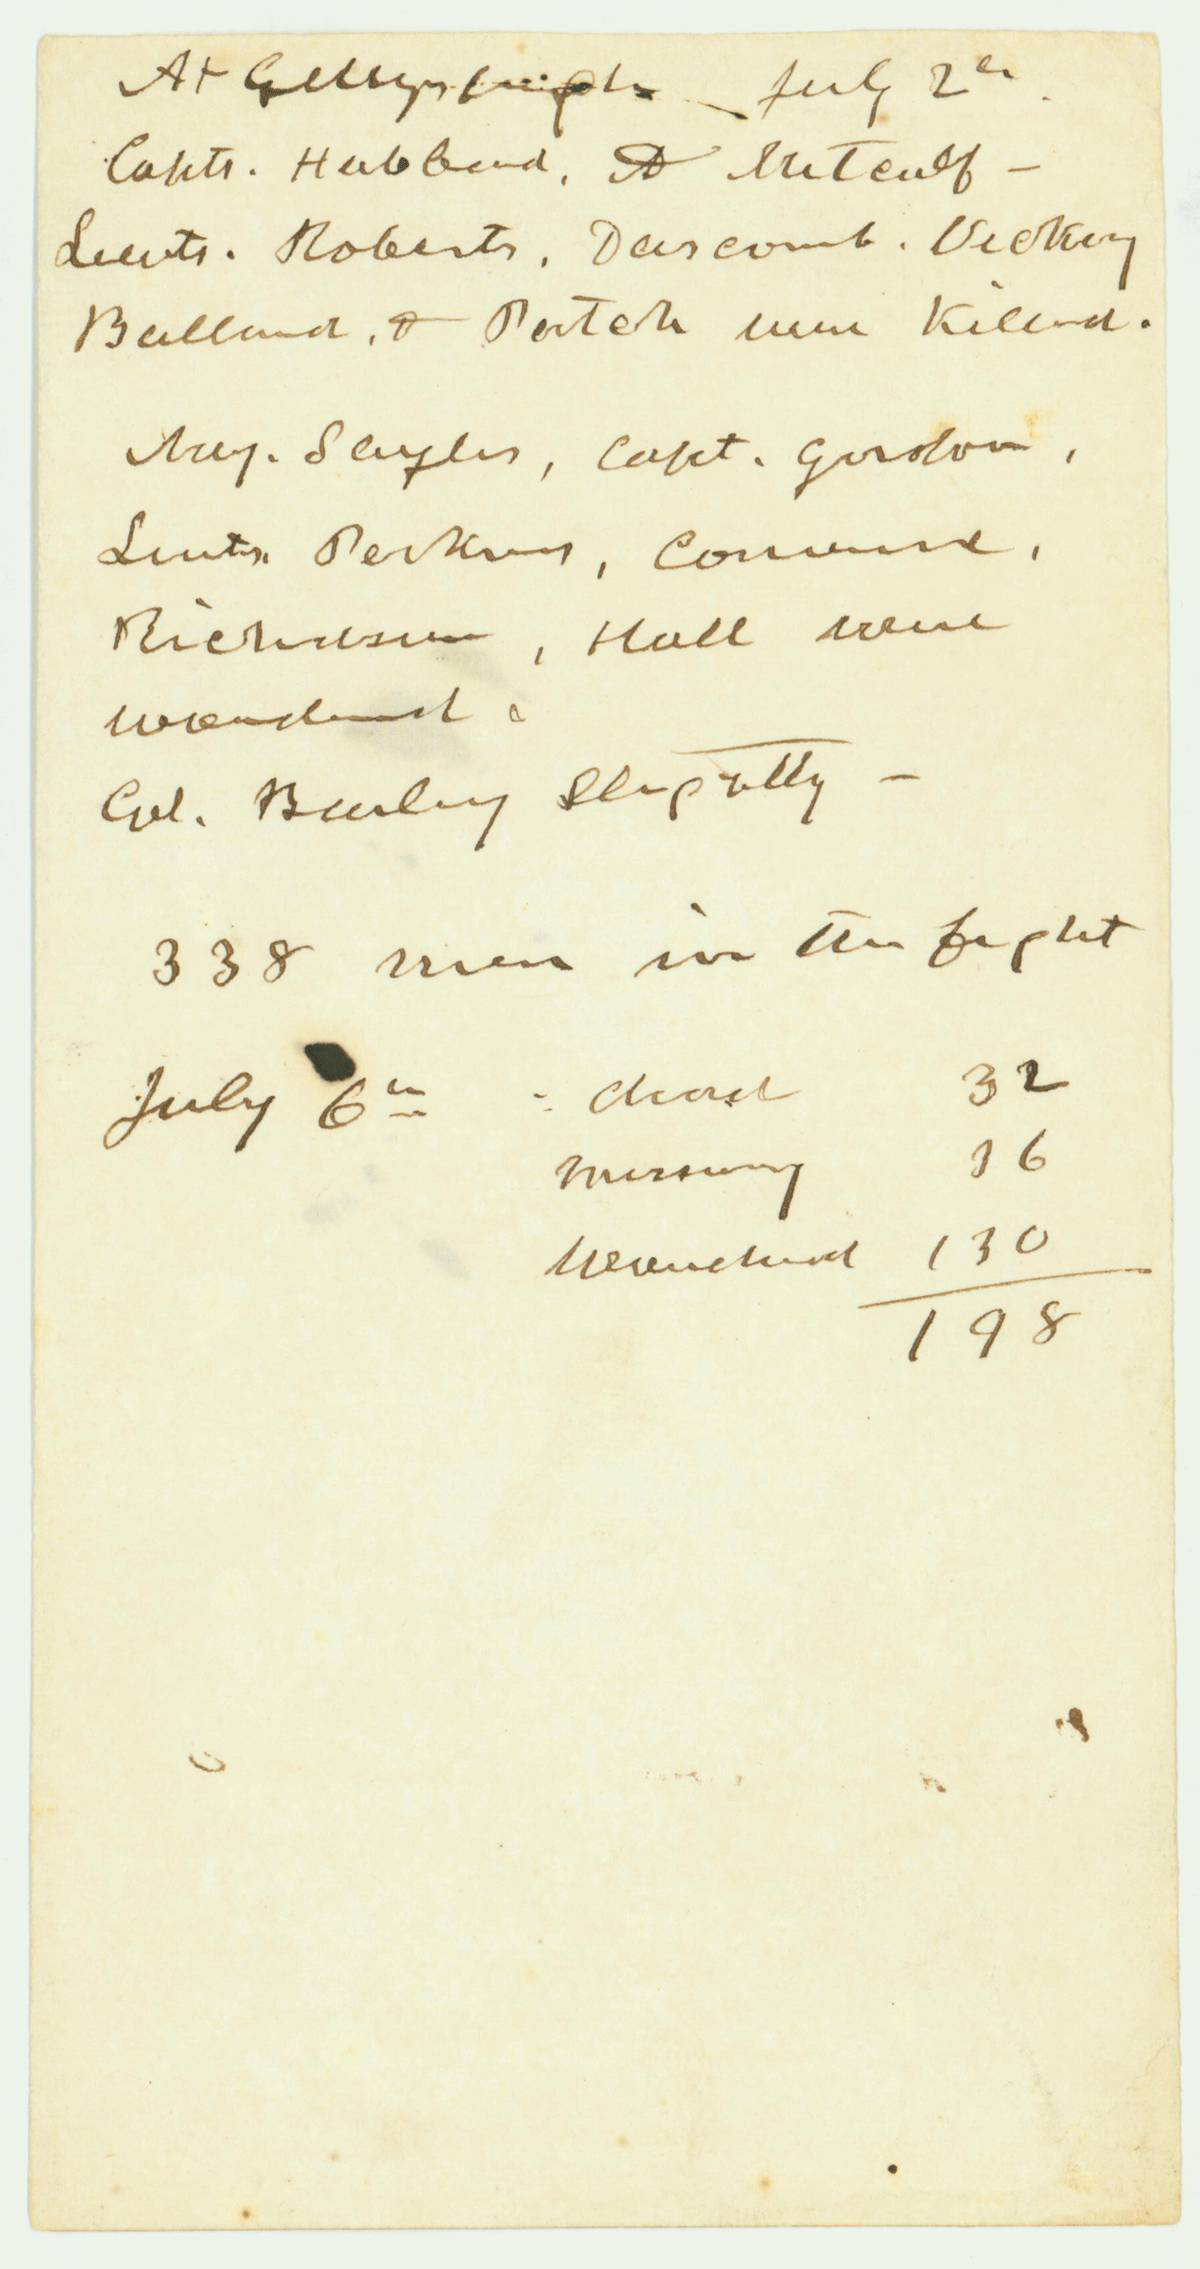 At Gettysburgh - July 2d.
Capts. Hubbard, & Metcalf -
Lieuts. Roberts, Dascomb. Vickery
Ballard, & Portch were Killed.
May. Sayles, Capt. Gordon,
Lieuts. Perkins, Converse,
Richardson, Hall were
wounded.
Col. Bailey Slightly -
338 men in the fight
July 6th - dead 32
missing 36
Wounded 130
198